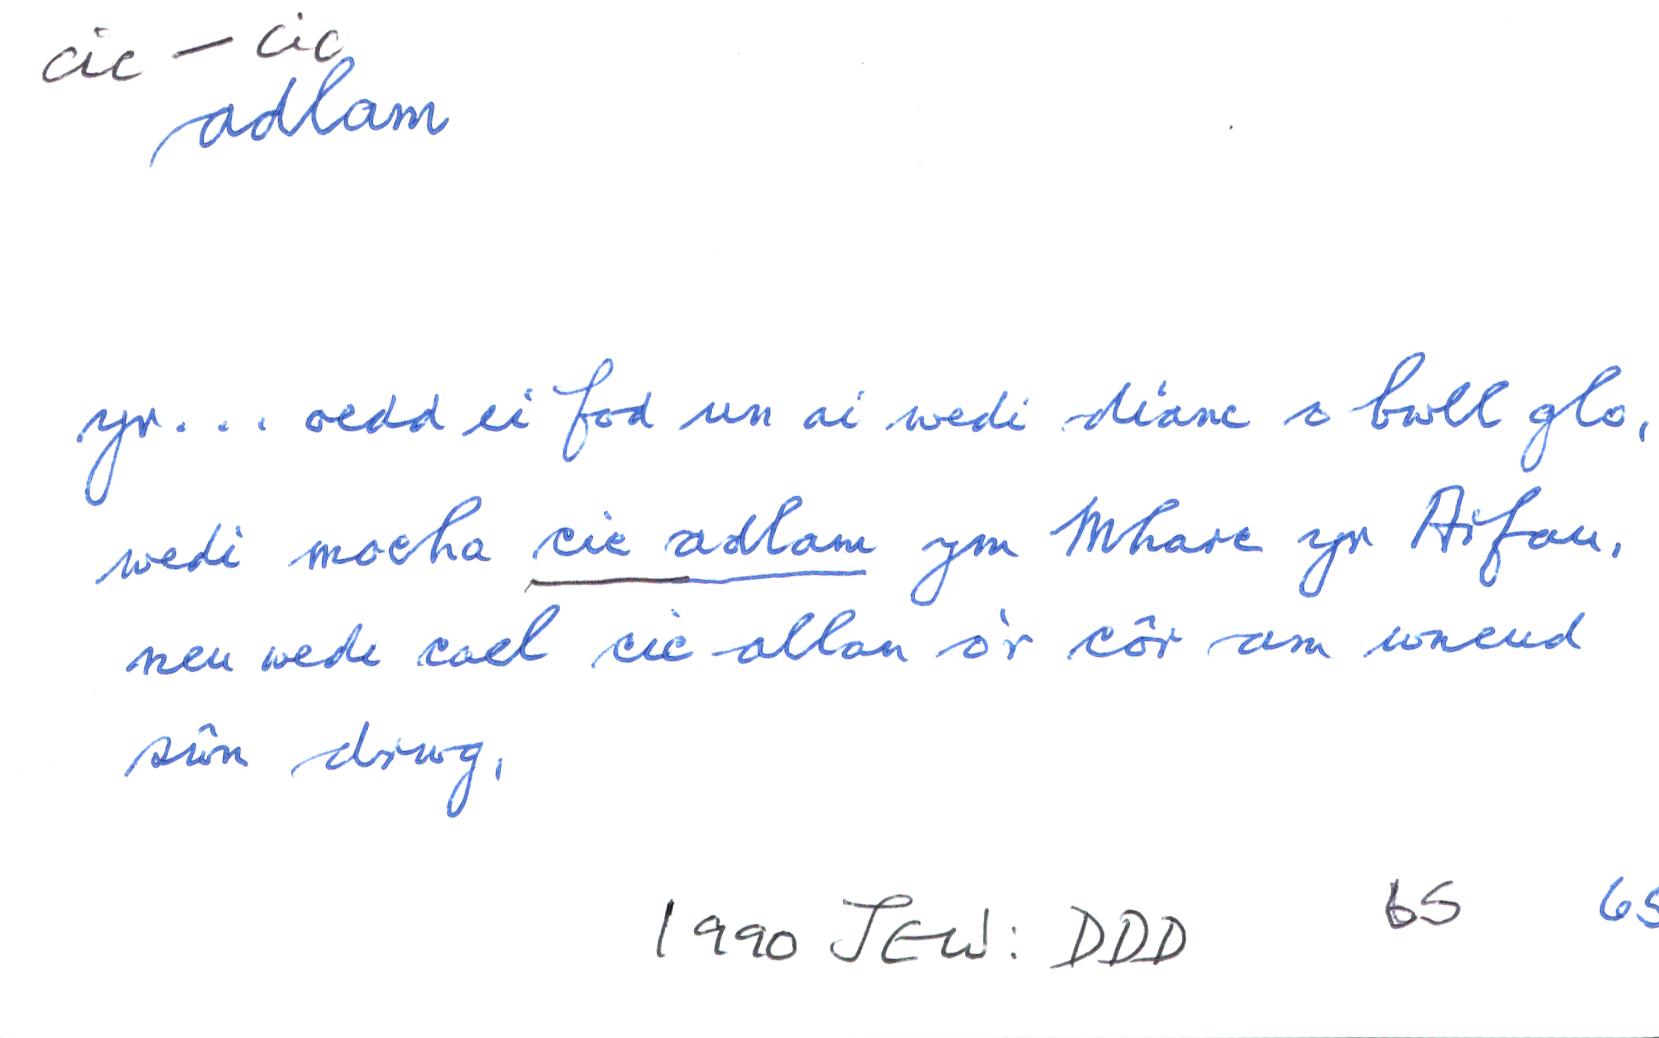 cic – cic
adlam
yr... oedd ei fod un ai wedi dianc o bwll glo,
wedi mocha cic adlam ym Mharc yr Arfau,
neu wedi cael cic allan o'r côr am wneud
sŵn drwg,
1990 JEW: DDD 65 65